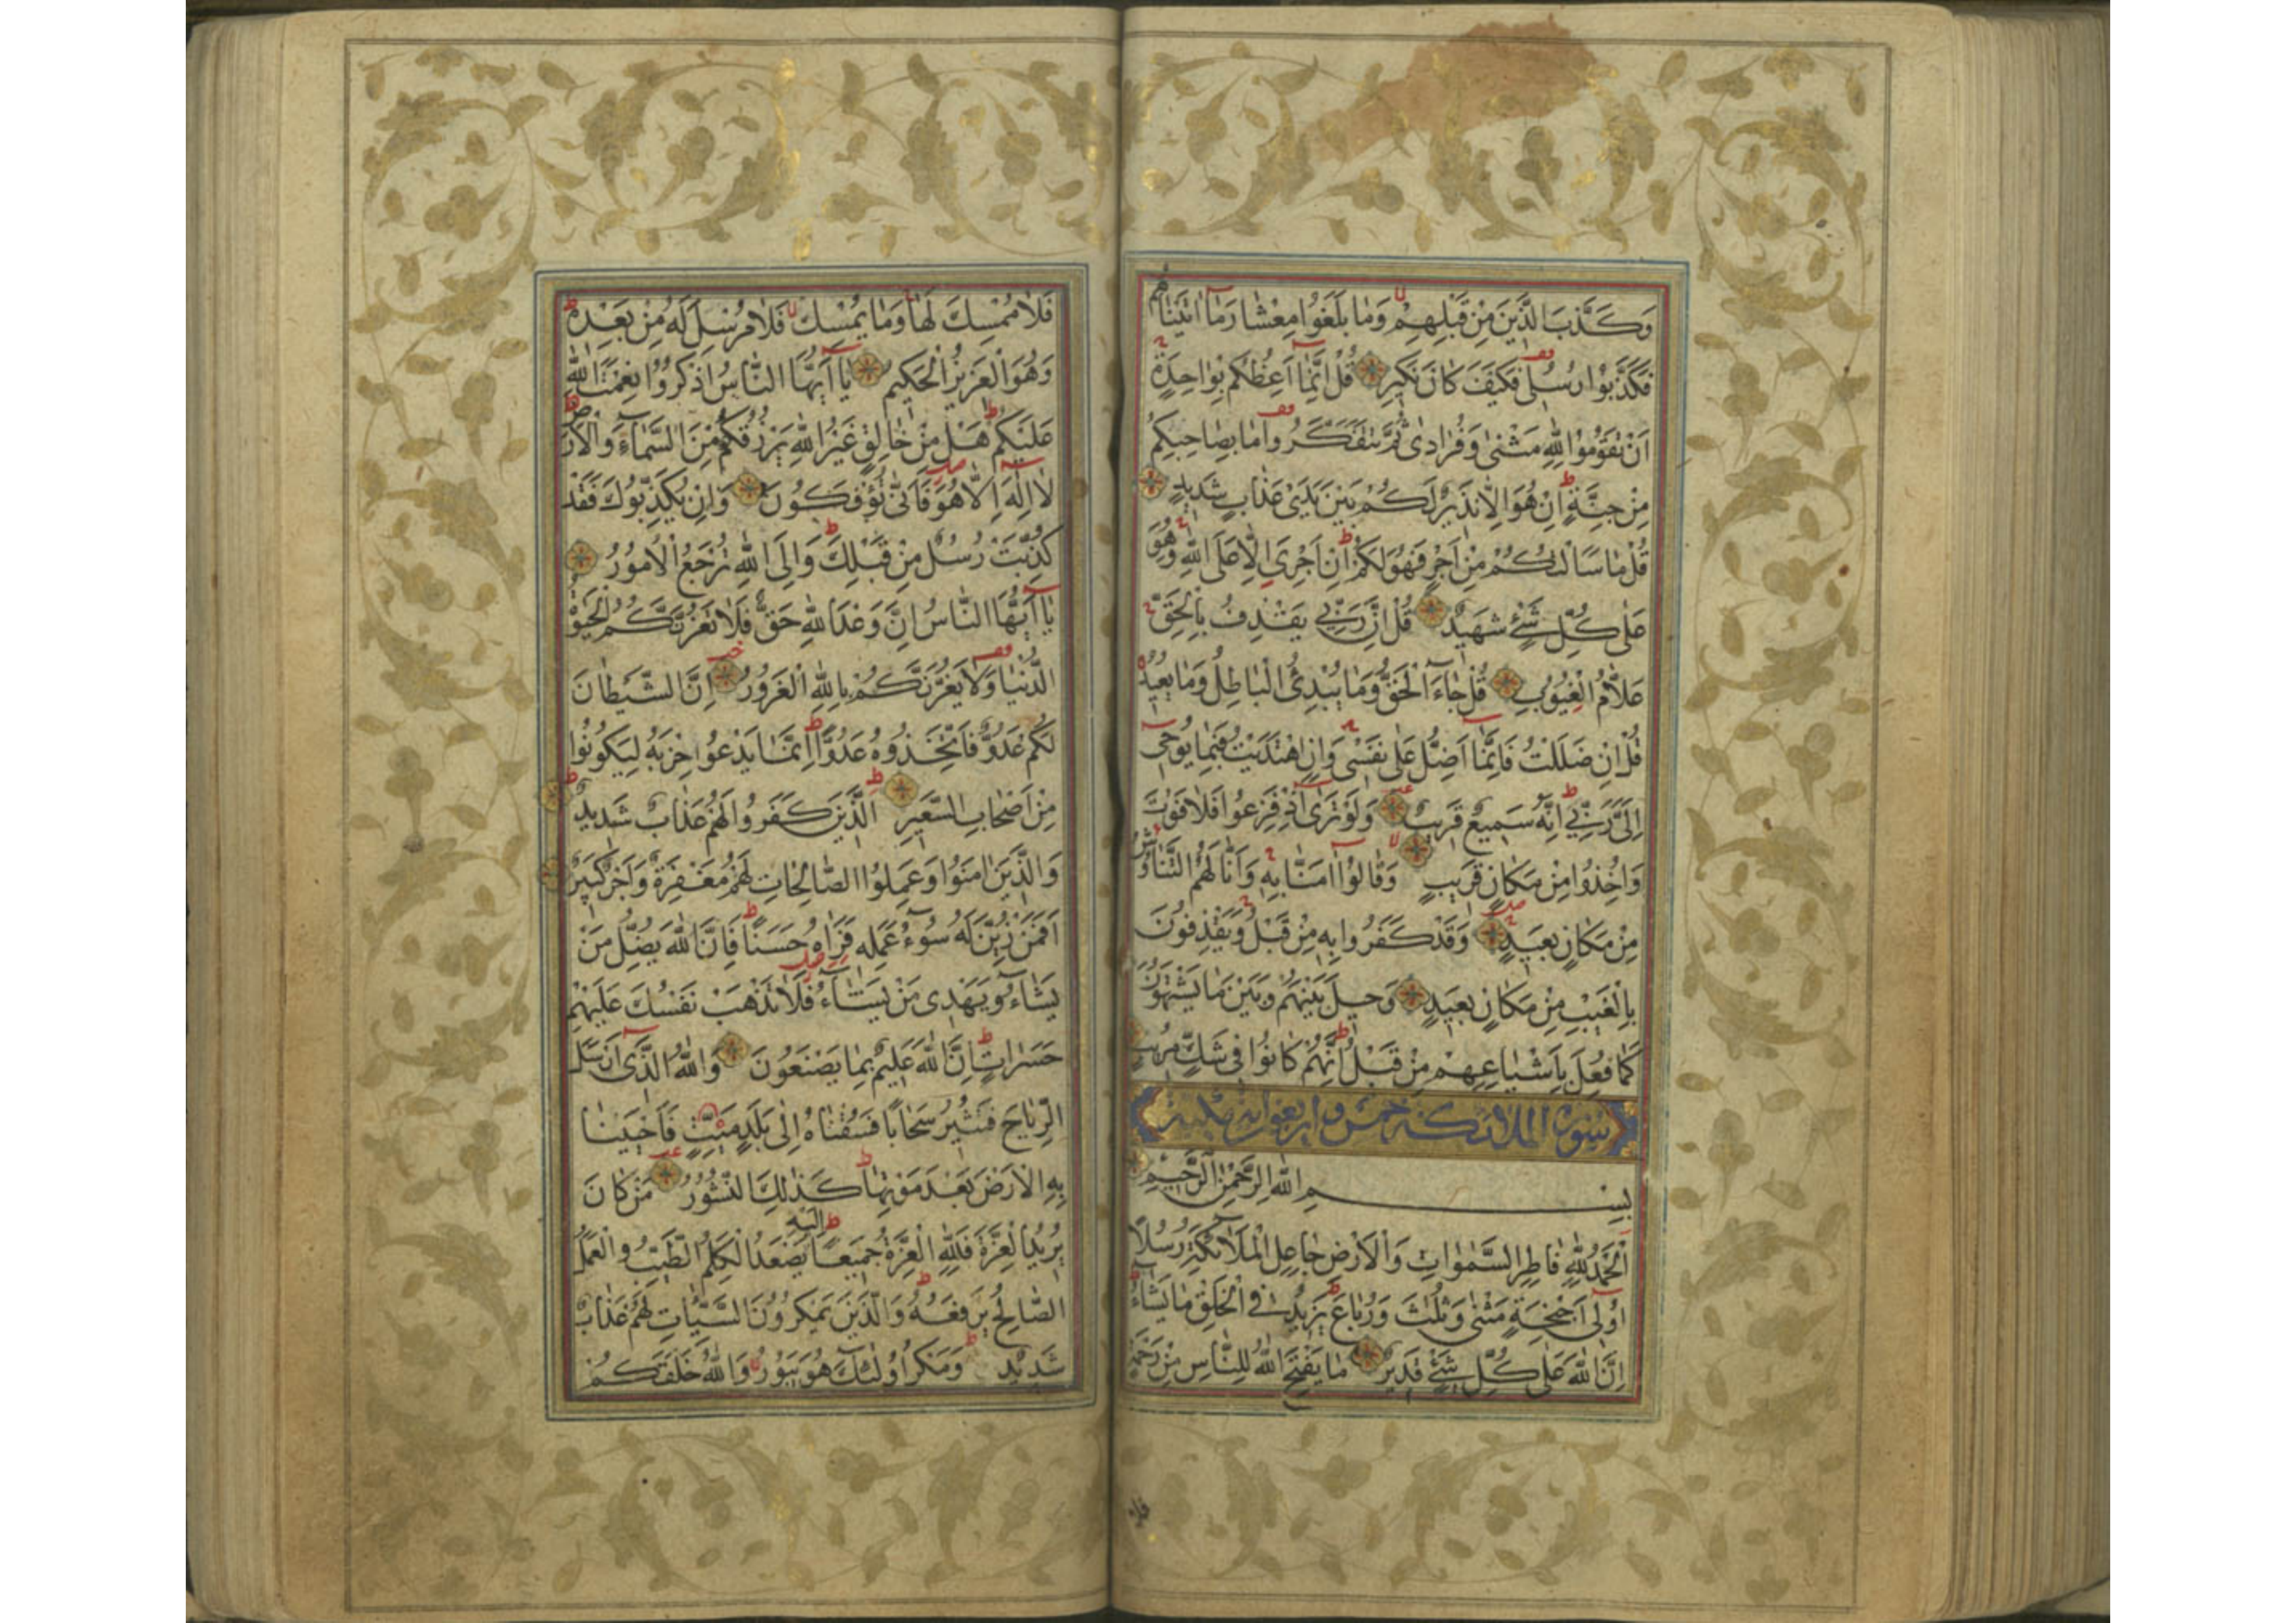 وَكَذَّبَ الَّذِينَ مِنْ قَبْلِهِمْ وَمَا بَلَغُوا مِعْشَارَ مَا اٰتَيْنَاهُمْ
فَكَذَّبُوا رُسُلِي فَكَيْفَ كَانَ نَكِيرِ قُلْ اِنَّمَا اَعِظُكُمْ بِوَاحِدَةٍ
اَنْ تَقُومُوا لِلّٰهِ مَثْنٰى وَفُرَادٰى ثُمَّ تَتَفَكَّرُوا مَا بِصَاحِبِكُمْ
مِنْ جِنَّةٍ اِنْ هُوَ اِلَّا نَذِيرٌ لَكُمْ بَيْنَ يَدَيْ عَذَابٍ شَدِيدٍ
قُلْ مَا سَاَلْتُكُمْ مِنْ اَجْرٍ فَهُوَ لَكُمْ اِنْ اَجْرِيَ اِلَّا عَلَى اللّٰهِ وَهُوَ
عَلٰى كُلِّ شَيْءٍ شَهِيدٌ قُلْ اِنَّ رَبِّي يَقْذِفُ بِالْحَقِّ
عَلَّامُ الْغُيُوبِ قُلْ جَاءَ الْحَقُّ وَمَا يُبْدِئُ الْبَاطِلُ وَمَا يُعِيدُ
قُلْ اِنْ ضَلَلْتُ فَاِنَّمَا اَضِلُّ عَلٰى نَفْسِي وَاِنِ اهْتَدَيْتُ فَبِمَا يُوحِي
اِلَيَّ رَبِّي اِنَّهُ سَمِيعٌ قَرِيبٌ وَلَوْ تَرٰى اِذْ فَزِعُوا فَلَا فَوْتَ
وَاُخِذُوا مِنْ مَكَانٍ قَرِيبٍ وَقَالُوا اٰمَنَّا بِهِ وَاَنّٰى لَهُمُ التَّنَاوُشُ
مِنْ مَكَانٍ بَعِيدٍ وَقَدْ كَفَرُوا بِهِ مِنْ قَبْلُ وَيَقْذِفُونَ
بِالْغَيْبِ مِنْ مَكَانٍ بَعِيدٍ وَحِيلَ بَيْنَهُمْ وَبَيْنَ مَا يَشْتَهُونَ
كَمَا فُعِلَ بِاَشْيَاعِهِمْ مِنْ قَبْلُ اِنَّهُمْ كَانُوا فِي شَكٍّ مُرِيبٍ
سورة الملائكة خمس واربعون اية مكية
بِسْمِ اللّٰهِ الرَّحْمٰنِ الرَّحِيمِ
اَلْحَمْدُ لِلّٰهِ فَاطِرِ السَّمٰوَاتِ وَالْاَرْضِ جَاعِلِ الْمَلَائِكَةِ رُسُلًا
اُولِي اَجْنِحَةٍ مَثْنٰى وَثُلٰثَ وَرُبَاعَ يَزِيدُ فِي الْخَلْقِ مَا يَشَاءُ
اِنَّ اللّٰهَ عَلٰى كُلِّ شَيْءٍ قَدِيرٌ مَا يَفْتَحِ اللّٰهُ لِلنَّاسِ مِنْ رَحْمَةٍ
فلا
فَلَا مُمْسِكَ لَهَا وَمَا يُمْسِكْ فَلَا مُرْسِلَ لَهُ مِنْ بَعْدِهِ
وَهُوَ الْعَزِيزُ الْحَكِيمُ يَا اَيُّهَا النَّاسُ اذْكُرُوا نِعْمَتَ اللّٰهِ
عَلَيْكُمْ هَلْ مِنْ خَالِقٍ غَيْرُ اللّٰهِ يَرْزُقُكُمْ مِنَ السَّمَاءِ وَالْاَرْضِ
لَا اِلٰهَ اِلَّا هُوَ فَاَنّٰى تُؤْفَكُونَ وَاِنْ يُكَذِّبُوكَ فَقَدْ
كُذِّبَتْ رُسُلٌ مِنْ قَبْلِكَ وَاِلَى اللّٰهِ تُرْجَعُ الْاُمُورُ
يَا اَيُّهَا النَّاسُ اِنَّ وَعْدَ اللّٰهِ حَقٌّ فَلَا تَغُرَّنَّكُمُ الْحَيٰوةُ
الدُّنْيَا وَلَا يَغُرَّنَّكُمْ بِاللّٰهِ الْغَرُورُ اِنَّ الشَّيْطَانَ
لَكُمْ عَدُوٌّ فَاتَّخِذُوهُ عَدُوًّا اِنَّمَا يَدْعُوا حِزْبَهُ لِيَكُونُوا
مِنْ اَصْحَابِ السَّعِيرِ الَّذِينَ كَفَرُوا لَهُمْ عَذَابٌ شَدِيدٌ
وَالَّذِينَ اٰمَنُوا وَعَمِلُوا الصَّالِحَاتِ لَهُمْ مَغْفِرَةٌ وَاَجْرٌ كَبِيرٌ
اَفَمَنْ زُيِّنَ لَهُ سُوءُ عَمَلِهِ فَرَاٰهُ حَسَنًا فَاِنَّ اللّٰهَ يُضِلُّ مَنْ
يَشَاءُ وَيَهْدِي مَنْ يَشَاءُ فَلَا تَذْهَبْ نَفْسُكَ عَلَيْهِمْ
حَسَرَاتٍ اِنَّ اللّٰهَ عَلِيمٌ بِمَا يَصْنَعُونَ وَاللّٰهُ الَّذِي اَرْسَلَ
الرِّيَاحَ فَتُثِيرُ سَحَابًا فَسُقْنَاهُ اِلٰى بَلَدٍ مَيِّتٍ فَاَحْيَيْنَا
بِهِ الْاَرْضَ بَعْدَ مَوْتِهَا كَذٰلِكَ النُّشُورُ مَنْ كَانَ
يُرِيدُ الْعِزَّةَ فَلِلّٰهِ الْعِزَّةُ جَمِيعًا اِلَيْهِ يَصْعَدُ الْكَلِمُ الطَّيِّبُ وَالْعَمَلُ
الصَّالِحُ يَرْفَعُهُ وَالَّذِينَ يَمْكُرُونَ السَّيِّئَاتِ لَهُمْ عَذَابٌ
شَدِيدٌ وَمَكْرُ اُولٰئِكَ هُوَ يَبُورُ وَاللّٰهُ خَلَقَكُمْ